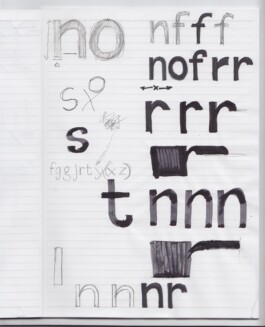 no nfff
nofrr
s
rrr
s
fggjrty(xz)
t nnn
l nnnr